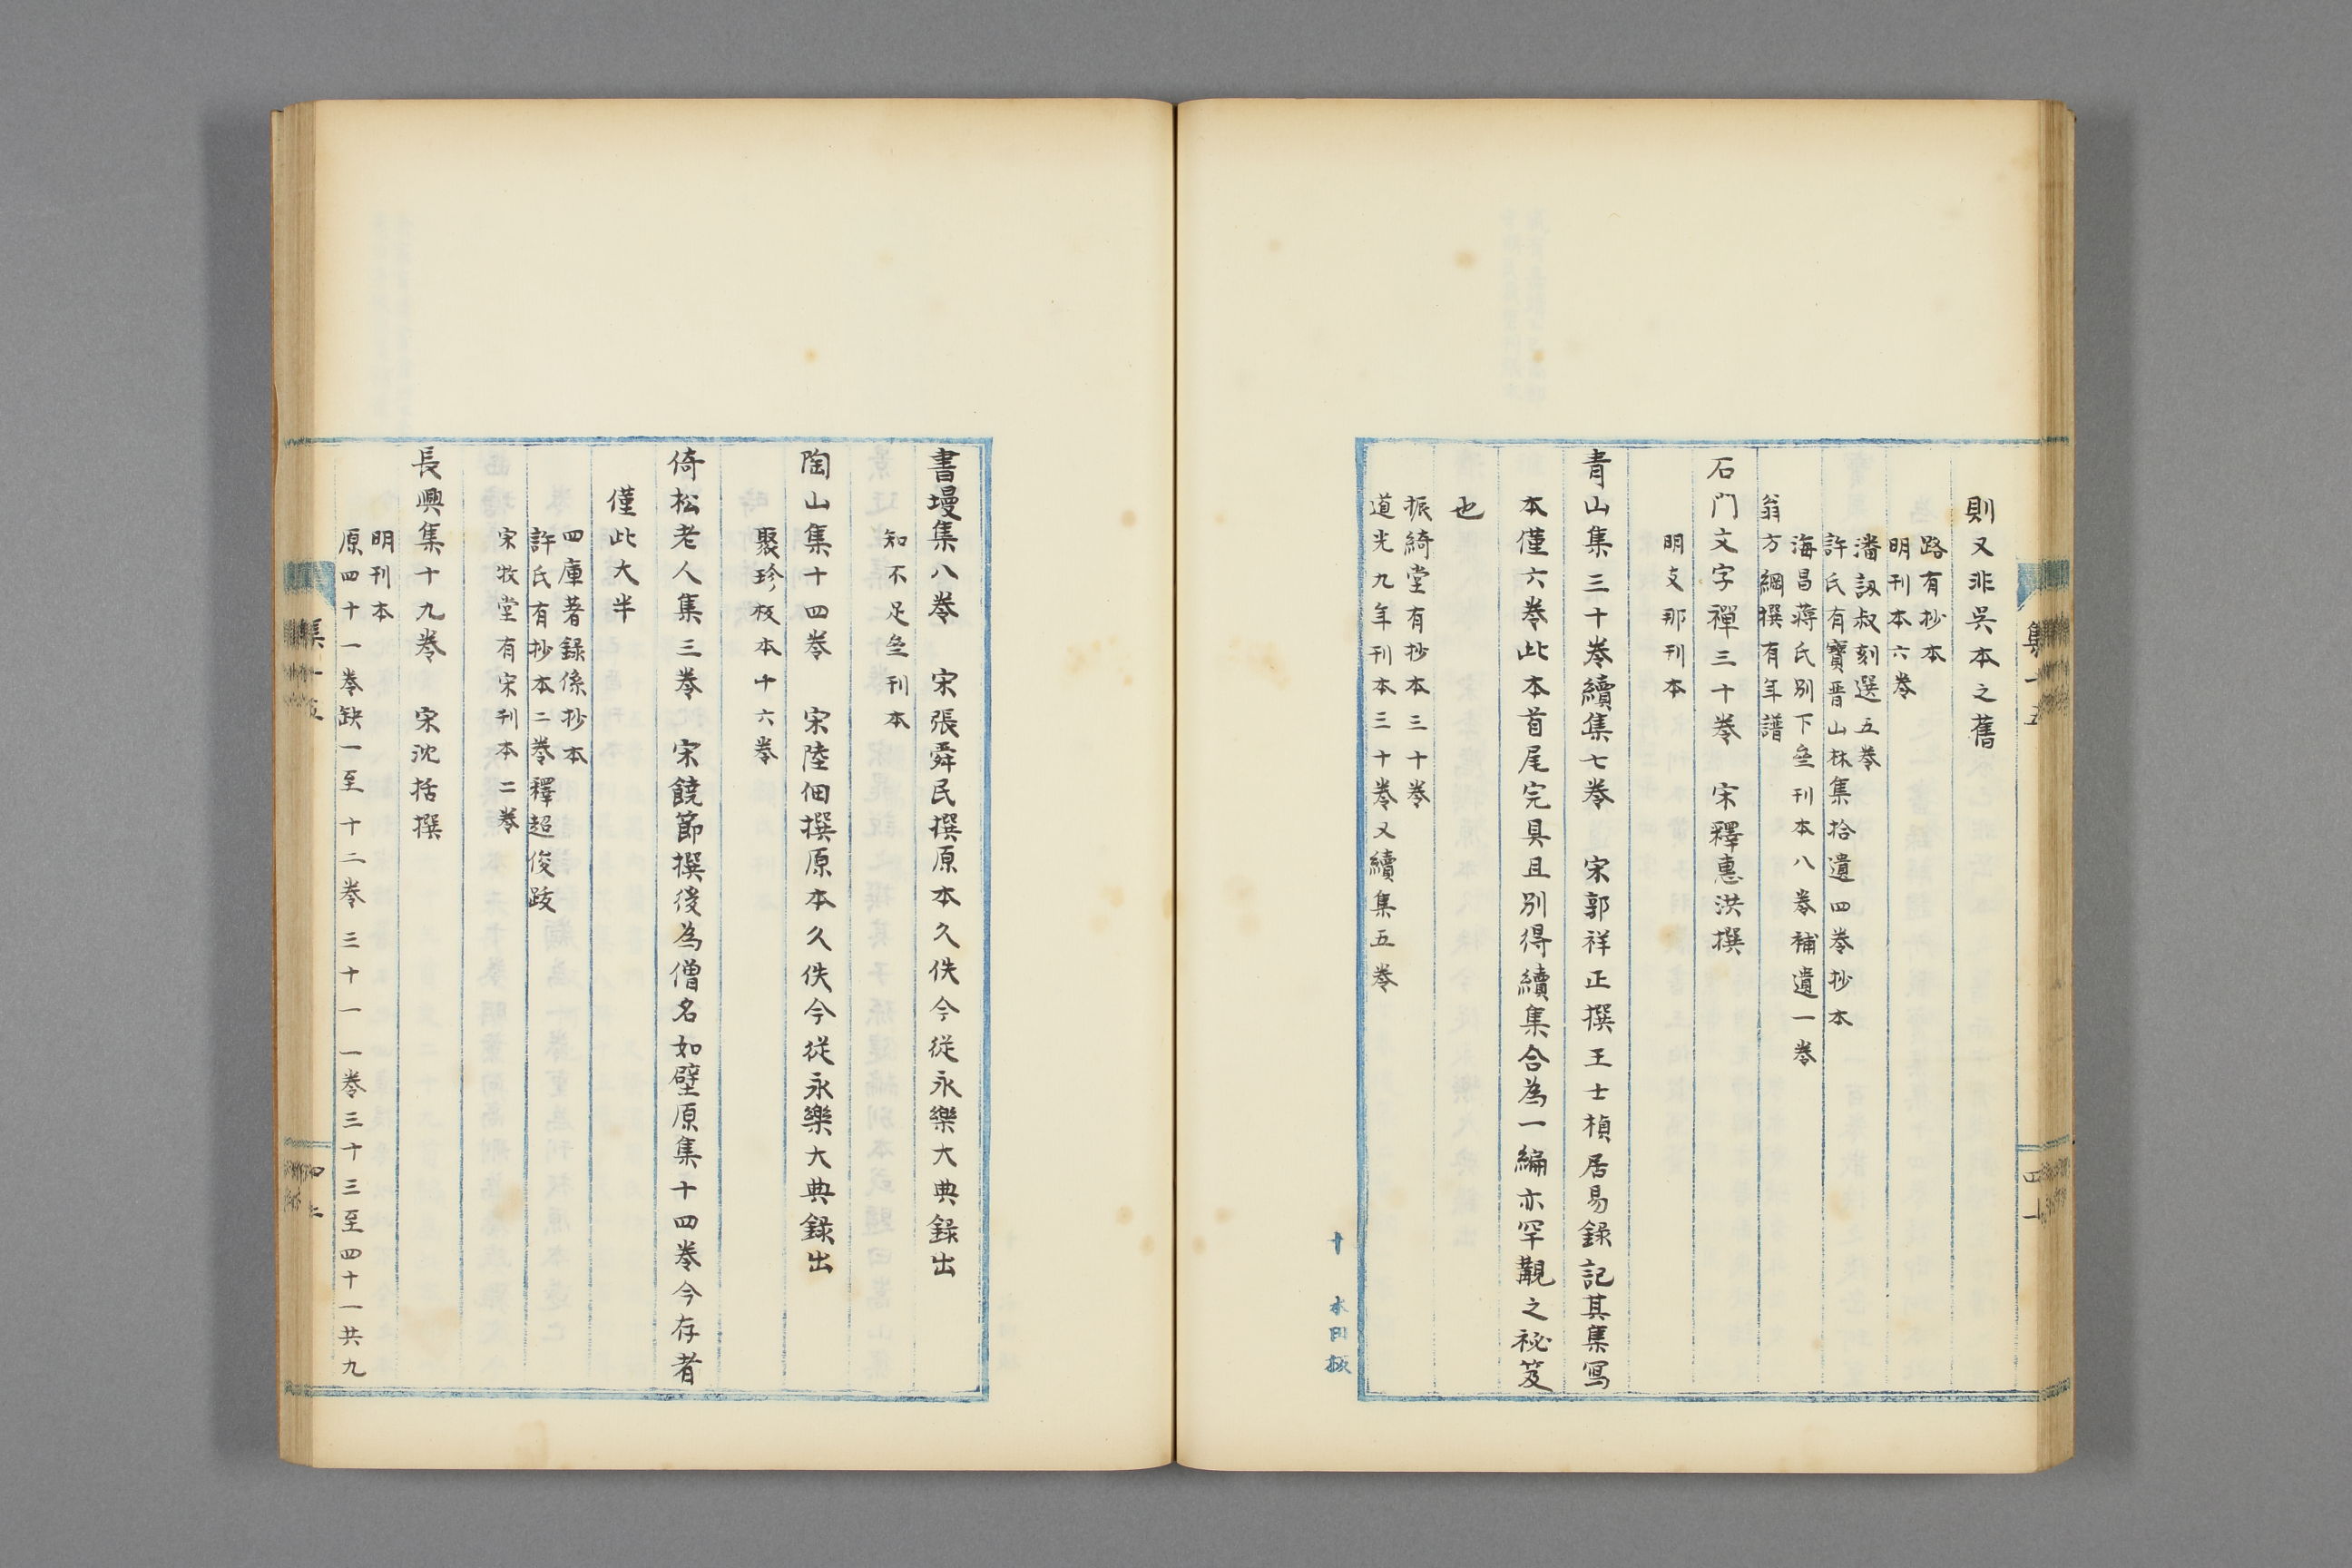 則又非吳本之舊
路有抄本
明刊本六卷
潘訒叔刻選五卷
許氏有寶晋山林集拾遺四卷抄本
海昌蔣氏別下亝刊本八卷補遺一卷
翁方綱撰有年譜
石门文字禪三十卷　宋釋惠洪撰
明支那刊本
青山集三十卷續集七卷　宋郭祥正撰王士楨居易錄記其集寫
本僅六卷此本首尾完具且別得續集合為一編亦罕覯之祕笈
也
振綺堂有抄本三十卷
道光九年刊本三十卷又續集五卷
集十五
四十
書墁集八卷　宋張舜民撰原本久佚今從永樂大典録出
知不足亝刊本
陶山集十四卷　宋陸佃撰原本久佚今從永樂大典録出
聚珍板本十六卷
倚松老人集三卷　宋饒節撰後為僧名如壁原集十四卷今存者
僅此大半
四庫著錄係抄本
許氏有抄本二卷釋超俊跋
宋牧堂有宋刊本二卷
長興集十九卷　宋沈括撰
明刊本
原四十一卷缺一至十二卷三十一一卷三十三至四十一共九
集十五